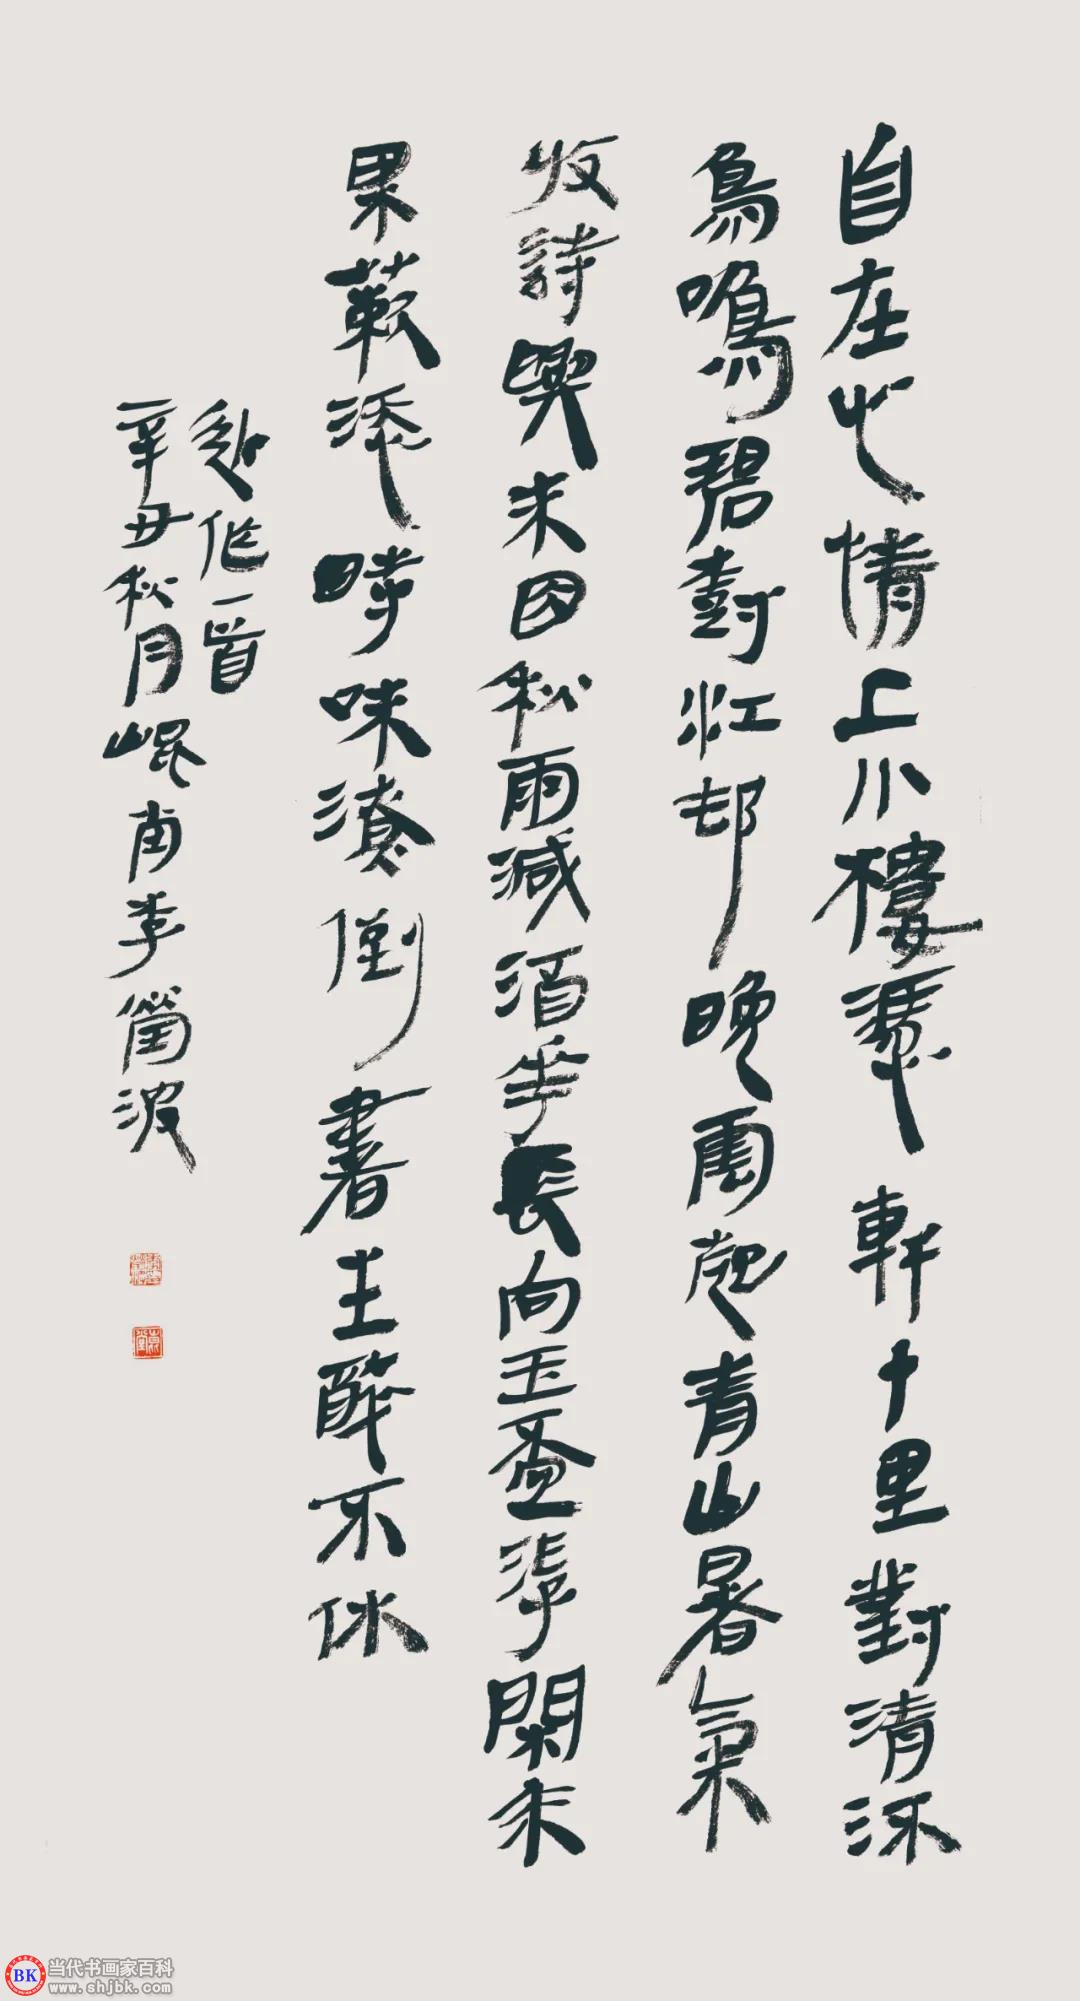 自在心情上小樓憑軒十里對清流
鳥鳴碧樹江邨晚雲起青山暑氣
收詩興未因秋雨減酒花長向玉盃浮閑來
果蔌添時味潦倒書生醉不休
近作一首
辛丑秋月崐南李波
BK 当代书画家百科
www.shjbk.com